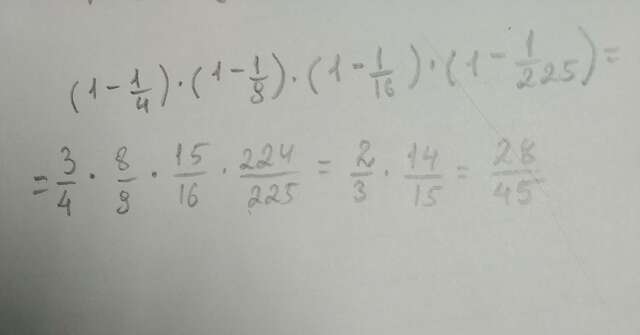 (1 - 1/4) · (1 - 1/9) · (1 - 1/16) · (1 - 1/225) =
= 3/4 · 8/9 · 15/16 · 224/225 = 2/3 · 14/15 = 28/45